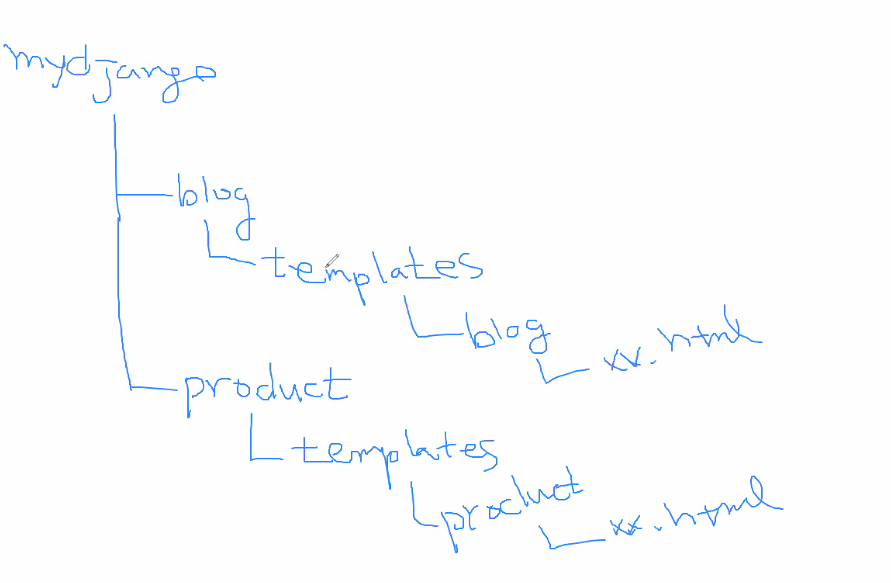 mydjango
blog
templates
blog
xx.html
product
templates
product
xx.html